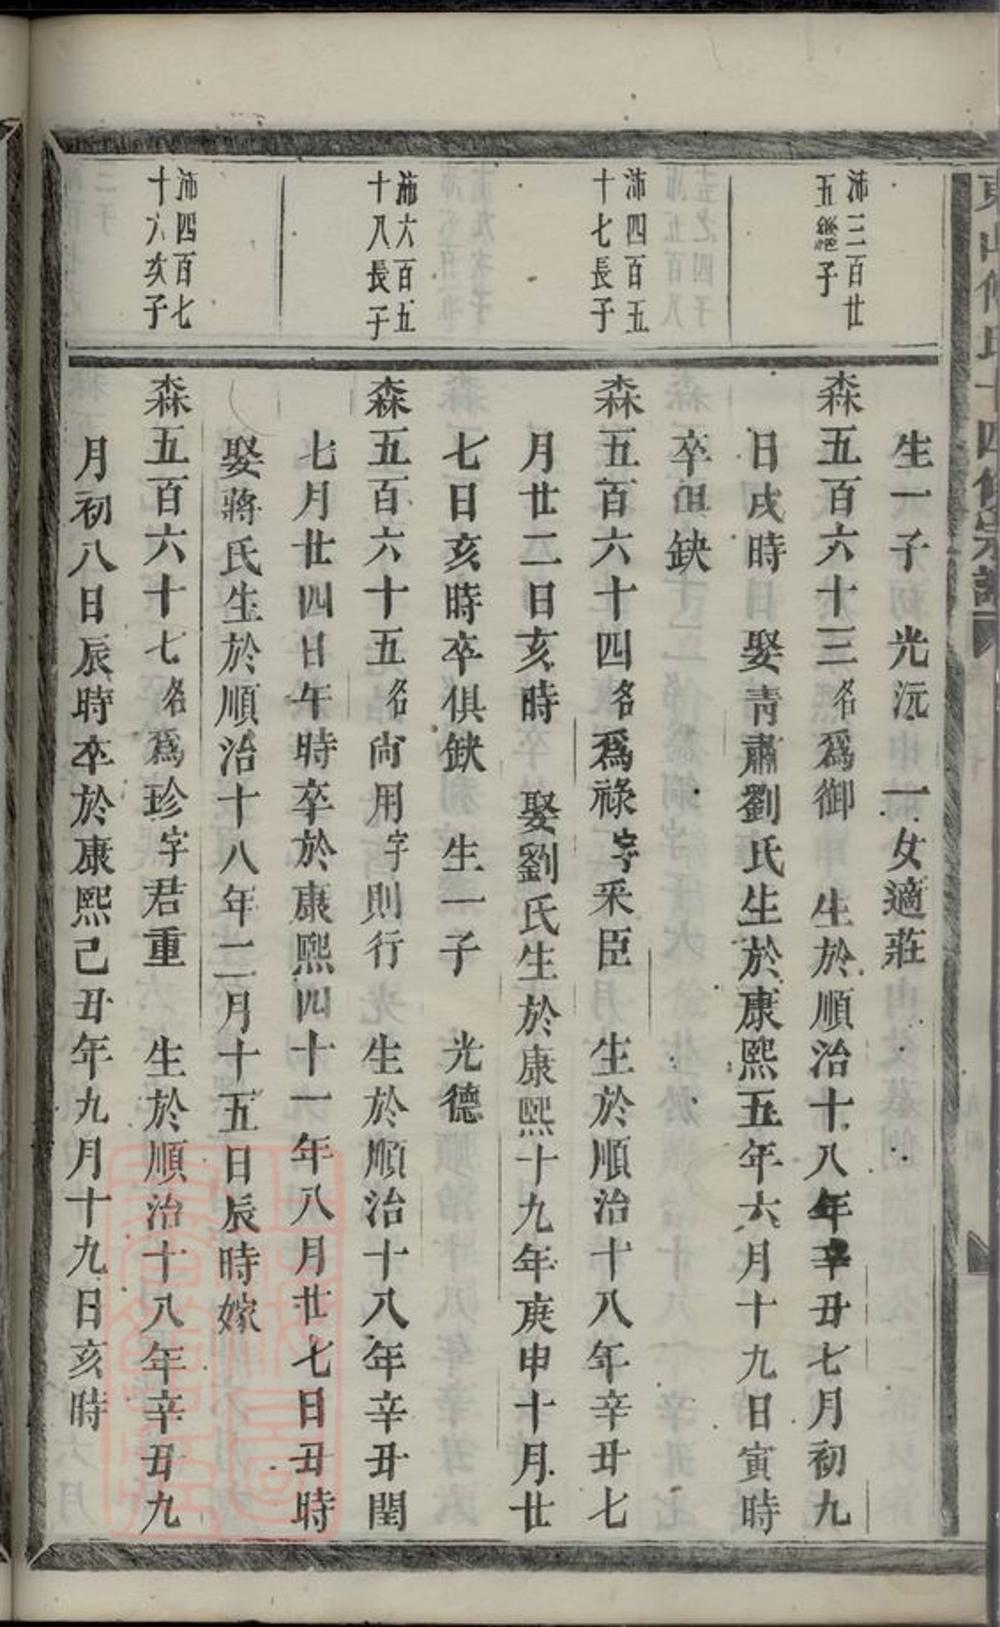 生一子 光沅 一女適莊
沛三百廿
五繼子
森五百六十三名爲御 生於順治十八年辛丑七月初九
日戌時 娶青肅劉氏生於康熙五年六月十九日寅時
卒俱缺
沛四百五
十七長子
森五百六十四名爲祿字采臣 生於順治十八年辛丑七
月廿二日亥時 娶劉氏生於康熙十九年庚申十月廿
七日亥時卒俱缺 生一子 光德
沛六百五
十八長子
森五百六十五名尚用字則行 生於順治十八年辛丑閏
七月廿四日午時卒於康熙四十一年八月廿七日丑時
娶蔣氏生於順治十八年二月十五日辰時嫁
沛四百七
十六次子
森五百六十七名爲珍字君重 生於順治十八年辛丑九
月初八日辰時卒於康熙己丑年九月十九日亥時